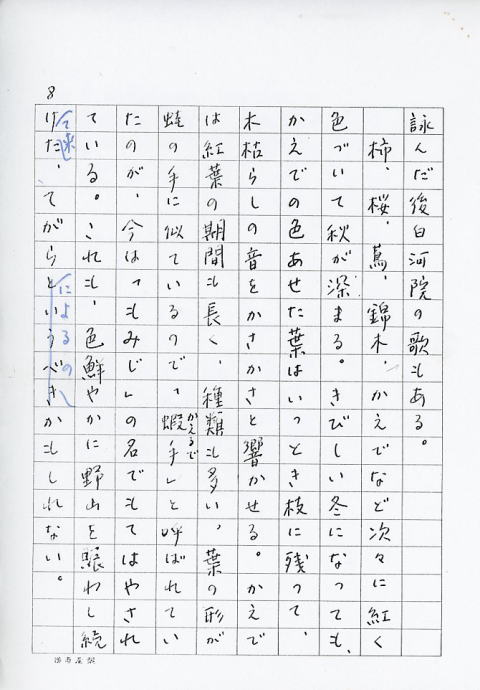 8
詠んだ後白河院の歌もある。
柿、桜、蔦、錦木、かえでなど次々に紅く
色づいて秋が深まる。きびしい冬になっても、
かえでの色あせた葉はいっとき枝に残って、
木枯らしの音をかさかさと響かせる。かえで
は紅葉の期間も長く、種類も多い。葉の形が
蛙の手に似ているので、「蝦手」と呼ばれてい
かえるで
たのが、今は「もみじ」の名でもてはやされ
ている。これも、色鮮やかに野山を賑わし続
けた、てがらというべきかもしれない。
て来
によるの
満寿屋製